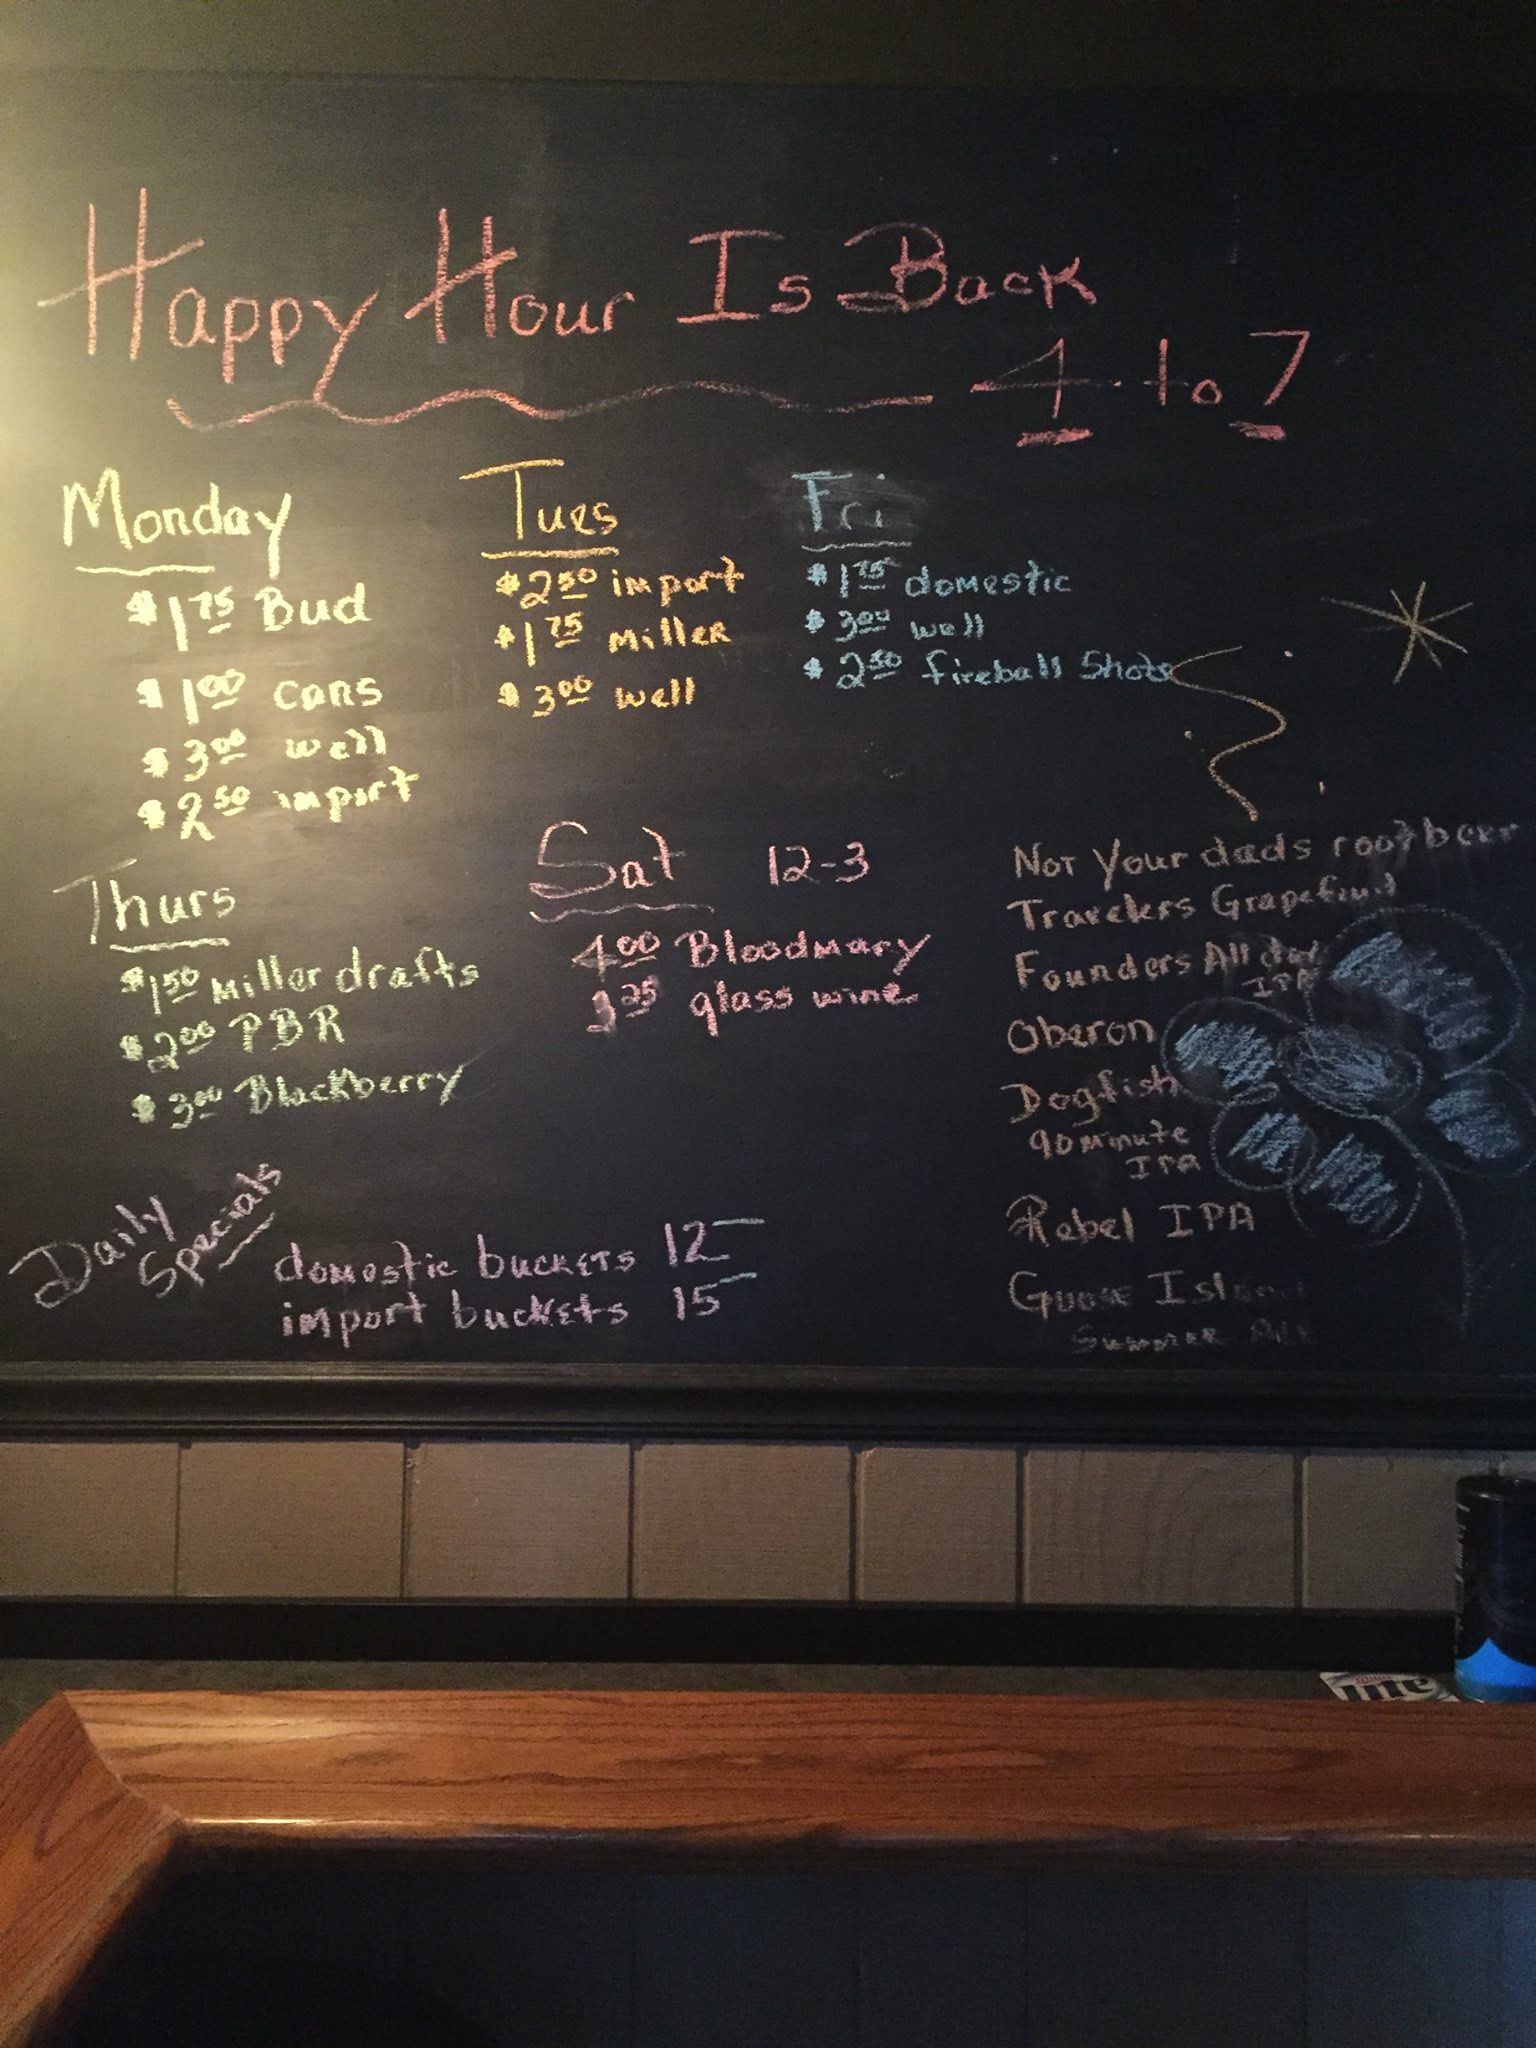 Happy Hour Is Back
4 to 7
Monday
$1.75 Bud
$1.00 cans
$3.00 well
$2.50 import
Tues
$2.50 import
$1.75 Miller
$3.00 well
Fri
$1.75 domestic
$3.00 well
$2.50 fireball Shots
Thurs
$1.50 Miller drafts
$2.00 PBR
$3.00 Blackberry
Sat 12-3
4.00 Bloodmary
glass wine
Not Your dads root beer
Travelers Grapefruit
Founders All day
IPA
Oberon
Dogfish
90 minute
IPA
Rebel IPA
Goose Island
Summer Ale
Daily
Specials
domestic buckets 12
import buckets 15
Lite